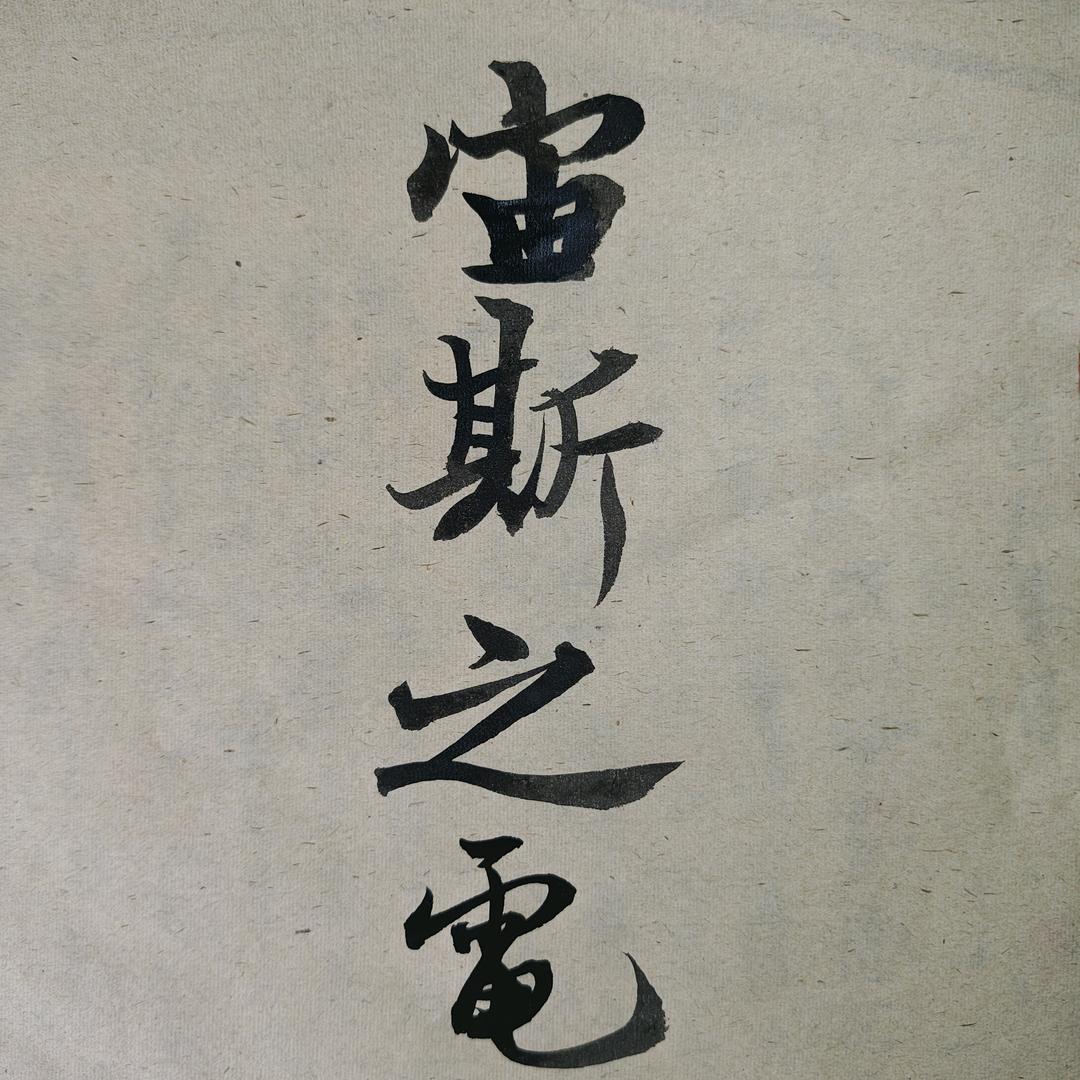 宙斯之電